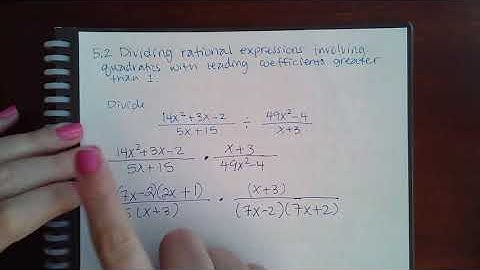 5.2 Dividing rational expressions involving
quadratics with leading coefficients greater
than 1.
Divide
14x²+3x-2 / 5x+15 ÷ 49x²-4 / x+3
14x²+3x-2 / 5x+15 · x+3 / 49x²-4
7x-2)(2x+1) / (x+3) · (x+3) / (7x-2)(7x+2)